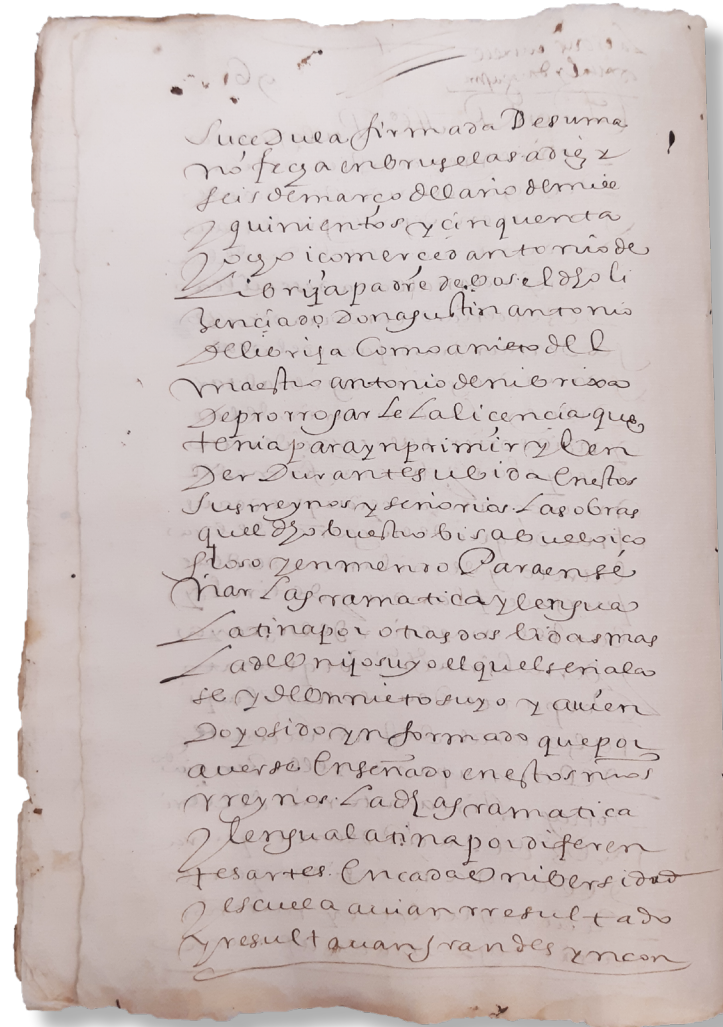 su cedula firmada de su ma
no fecha en bruselas a diez y
seis de março del año de mill
y quinientos y cinquenta
y ocho hiço merced a antonio de
librija padre de vos el dho li
zenciado don agustin antonio
de librija como a nieto del
maestro antonio de nibrixa
de prorrogarle la licencia que
tenia para ynprimir y ben
der durante su bida en estos
sus rreynos y señorios las obras
quel dho buestro bisabuelo
para ense
ñar la gramatica y lengua
latina por otras dos bidas mas
la de un hijo suyo el quel señala
se y de un nieto suyo y avien
do yo sido ynformado que por
averse enseñado en estos nros
rreynos la dha gramatica
y lengua latina por diferen
tes artes en cada unibersidad
y escuela avian rresultado
y resultavan grandes yncon